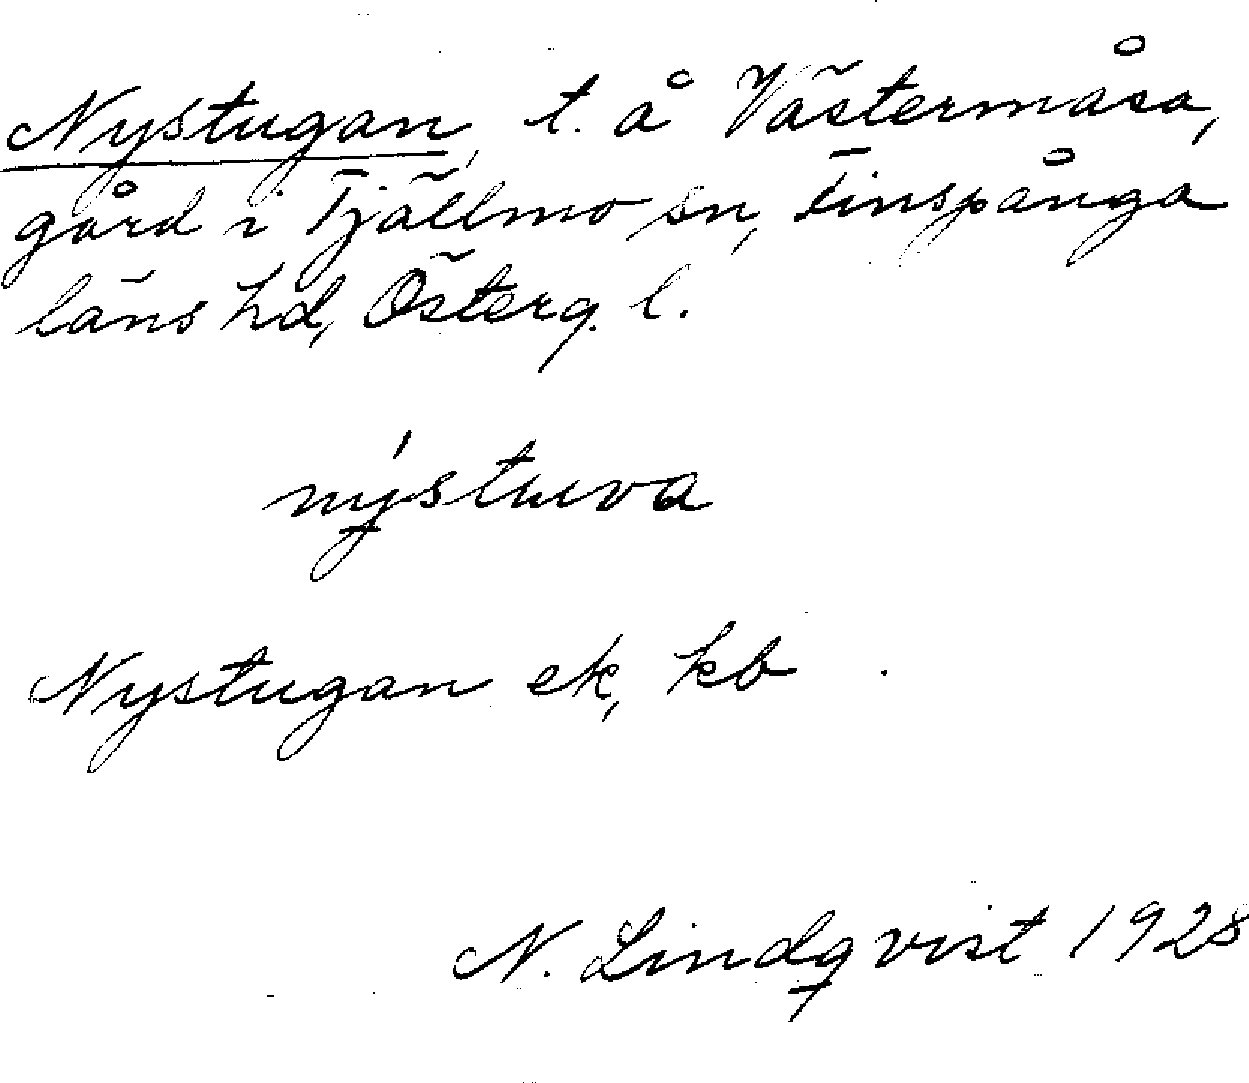 Nystugan, t. å Västermåsa,
gård i Tjällmo sn, Finspånga
läns hd, Österg. l.
nýstuva
Nystugan ek, kb
N. Lindqvist 1928